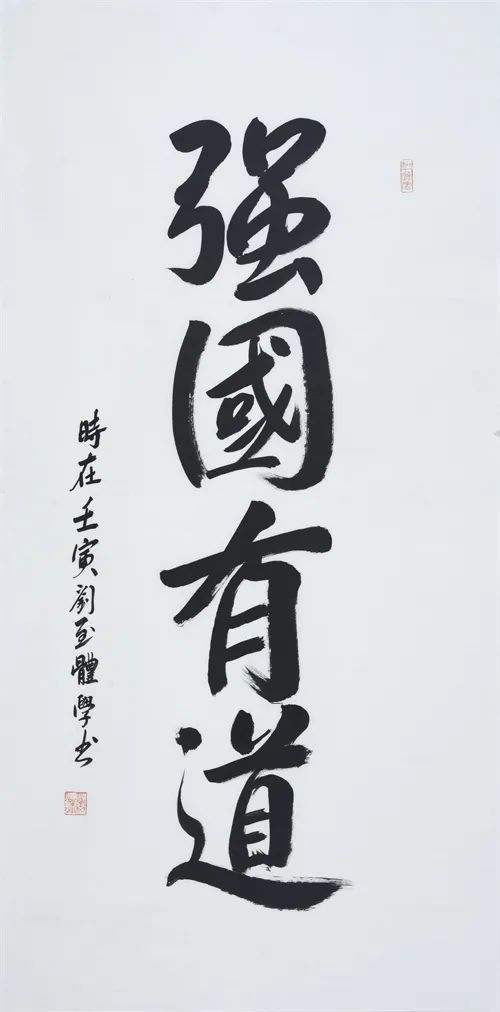 强國有道
時在壬寅劉至體學书